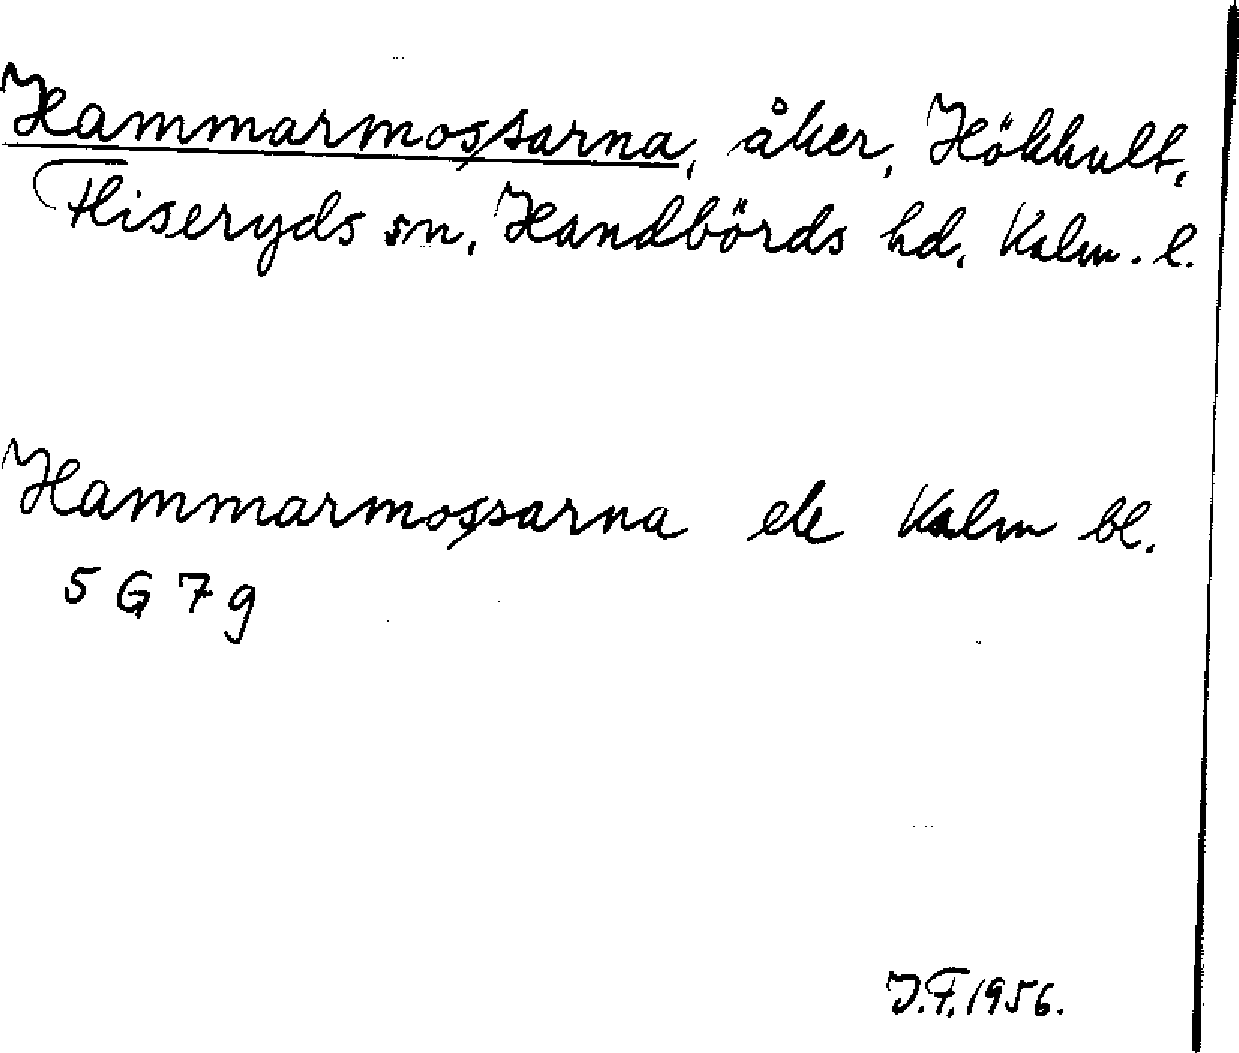 Hammarmossarna, åker, Hökhult,
Fliseryds sn, Handbörds hd, Kalm. l.
Hammarmossarna ek Kalm bl.
5 G 7 g
J.F. 1956.